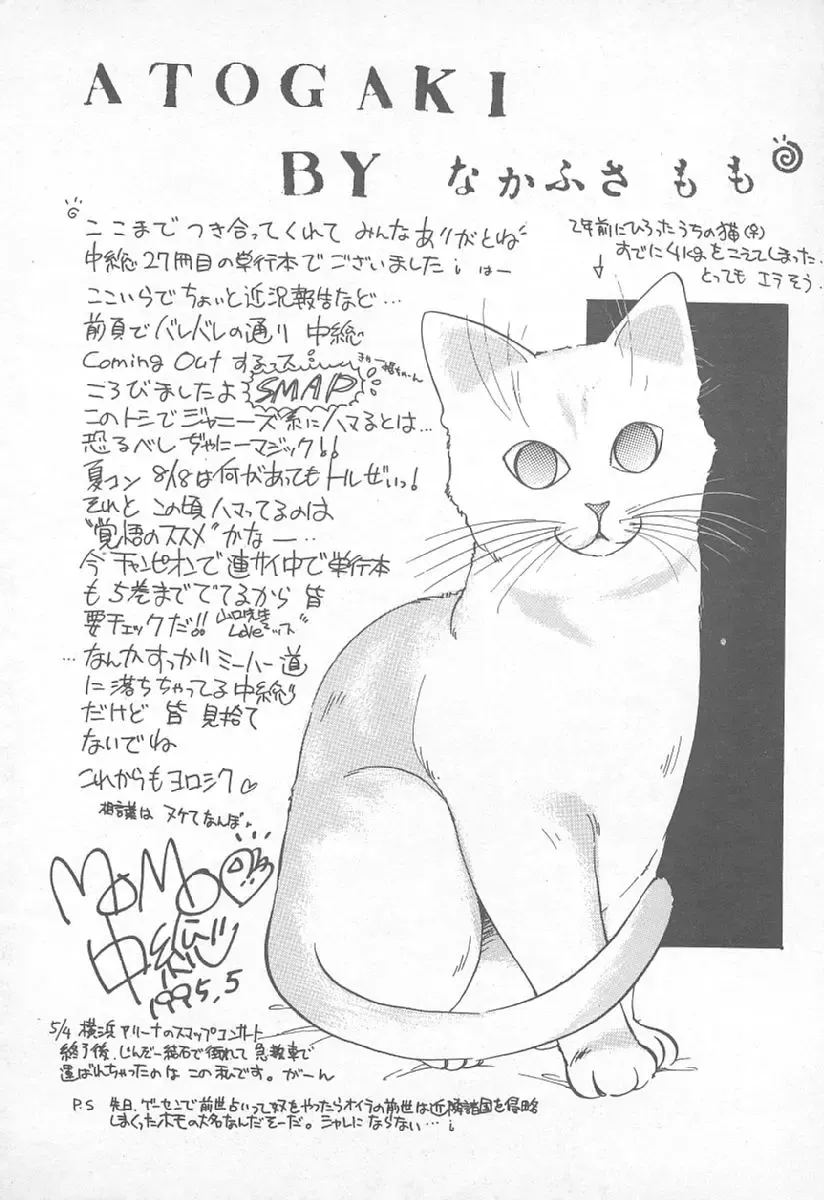 ATOGAKI
BY なかふさもも
ここまで つき合ってくれて みんなありがとね
中総27冊目の単行本でございました
ここいらでちょいと近況報告など…
前頁でバレバレの通り 中総
Coming Out する
ころびましたよ SMAP
このトシでジャニーズ系にハマるとは…
恐るべし ぢゃにーマジック!!
夏コン 8/18は何があってもトルぜいっ!
それと この頃ハマってるのは
"覚悟のススメ"かなー…
今チャンピオンで連サイ中で単行本
も5巻まででてるから 皆
要チェックだ!! 山口先生Loveっス
…なんかすっかりミーハー道
に落ちちゃってる中総
だけど 皆 見捨て
ないでね
これからもヨロシク♡
相談は ヌケてなんぼ
MOMO
中総
1995.5
2年前にひろったうちの猫(♀)
すでに4kgをこえてしまった.
とっても エラそう.
5/4 横浜アリーナのスマップコンサート
終了後、じんぞー結石で倒れて 救急車で
運ばれちゃったのは この私です。がーん
P.S 先日、ゲーセンで前世占いって奴をやったらオイラの前世は近隣諸国を侵略
しまくったホモの大名なんだそーだ。シャレにならない…